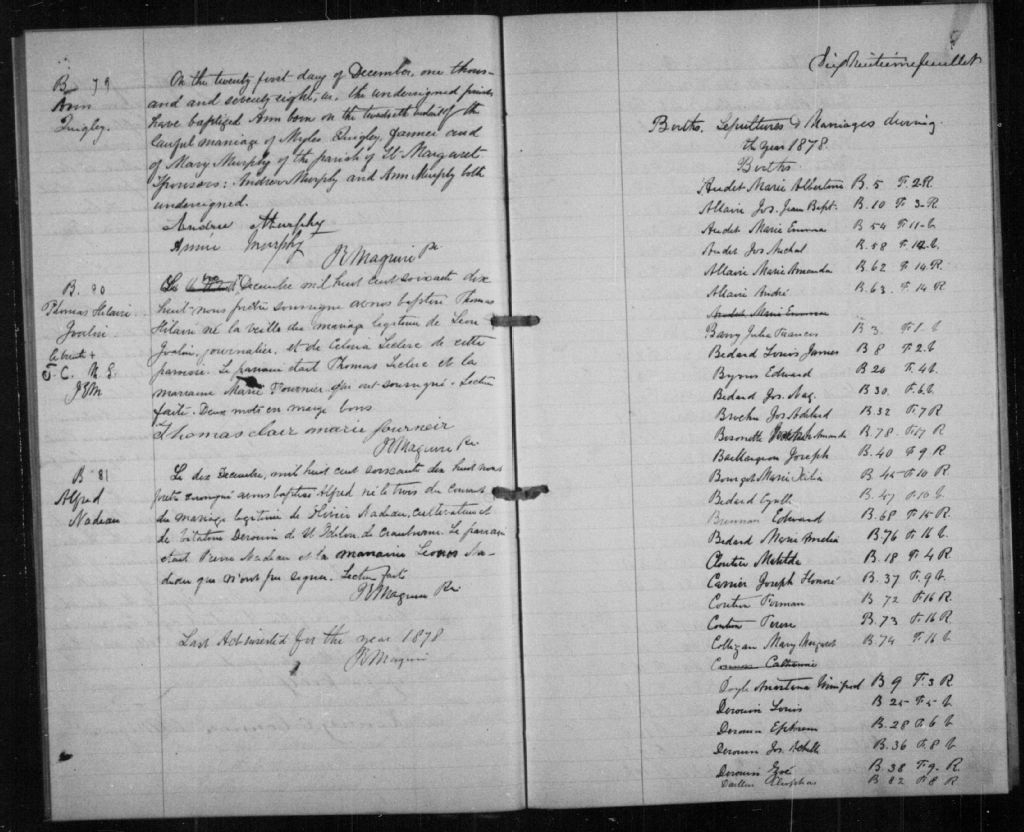 B 79
Ann
Quigley.
On the twenty first day of December, one thous-
and and seventy eight, we, the undersigned priest
have baptized Ann born on the twentieth instant of the
lawful marriage of Myles Quigley, farmer and
of Mary Murphy of the parish of St Margaret
Sponsors: Andrew Murphy and Ann Murphy both
undersigned.
Andrew Murphy
Annie Murphy
JEMaguire Pr
B. 80
Thomas Hilaire
Le Decembre mil huit cent soixante dix
huit nous pretre soussigné avons baptisé Thomas
Hilaire né la veille du mariage legitime de Leon
journalier, et de Leclerc de cette
paroisse. Le parrain etait Thomas Leclerc et la
marraine Marie Fournier qui ont soussigné. Lecture
faite. Deux mots en marge bons
Thomas clair marie fournier
JEMaguire Pr
T. C. M. L.
JEM
B 81
Alfred
Nadeau
Le dix Decembre, mil huit cent soixante dix huit nous
pretre soussigné avons baptisé Alfred né le trois du courant
du mariage legitime de Nadeau, cultivateur et
de Derouin de St de Cranbourne. Le parrain
etait Pierre Nadeau et la marraine Na-
deau qui n'ont pu signer. Lecture faite
JEMaguire Pr
Last Act inserted for the year 1878
JEMaguire
Dix huitieme feuillet
Births, Sepultures & Marriages during
th year 1878.
Births
Audet Marie Albertine B. 5 F. 2 R.
Allaire Jos. Jean Bapt. B. 10 F. 3 R
Audet Marie Emma B 54 F. 11 V.
Audet Jos Michel B. 58 F. 12 V.
Allaire Marie Amanda B. 62 F. 14 R.
Allaire André B. 63. F. 14 R
Audet Marie Emma
Barry Julia Frances B 3 F. 1. V
Bedard Louis James B 8 F. 2. V
Byrns Edward B. 20 F. 4 V.
Bedard Jos. B. 30 F. 6 V.
Jos Adelard B. 32 F. 7 R
Amanda B. 78. F. 17 R
Baillargeon Joseph B. 40 F. 9 R
Bourget Marie B. 45 F. 10 R.
Bedard B. 47 F. 10 V.
Brennan Edward B. 68 F. 15 R.
Bedard Marie Amelia B. 76 F. 16 V.
Cloutier Matilda B. 18 F. 4 R
Carrier Joseph Honoré B. 37 F. 9 V.
Couture B. 72 F. 16 R
Couture B. 73 F. 16 R
Colligan Mary Margaret B. 74 F. 16 V.
Catherine
Doyle Winifred B 9 F. 3 R
Derouin Louis B 25 F. 5 V.
Derouin Ephrem B. 28 F. 6 V.
Derouin Jos. Achille B. 36 F. 8 V.
Derouin Zoé B. 38 F. 9. R.
Cleophas F. 8 R.